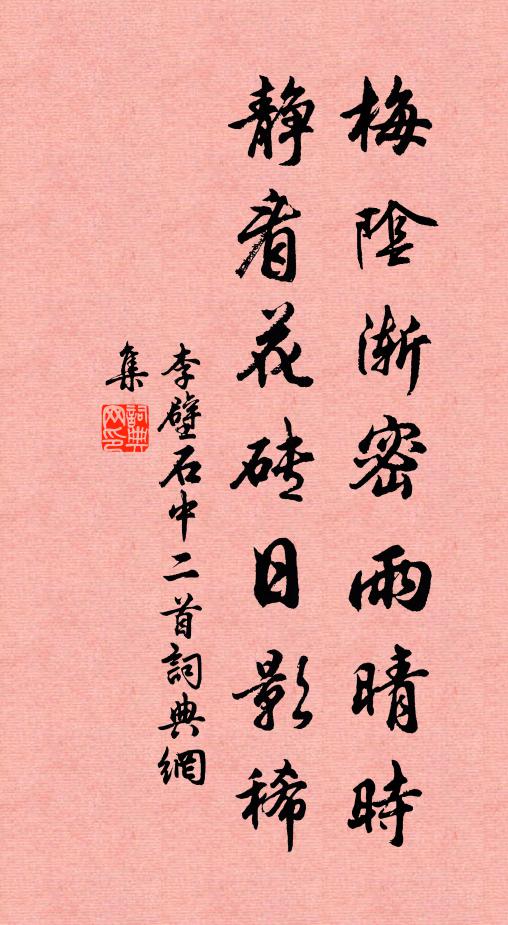 梅陰漸密雨晴時
静看花磚日影稀
李壁石中二首詞典網
集
詞典網印